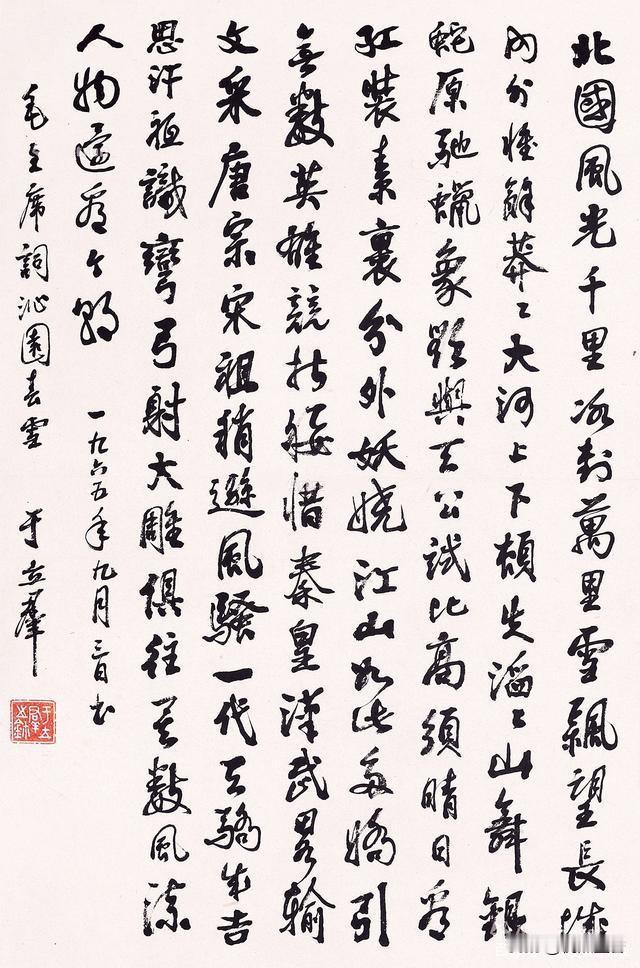 北國風光千里冰封萬里雪飄望長城
內外惟餘莽〻大河上下頓失滔〻山舞銀
蛇原馳蠟象欲與天公試比高須晴日看
紅裝素裹分外妖嬈江山如此多嬌引
無數英雄競折腰惜秦皇漢武畧輸
文采唐宗宋祖稍遜風騷一代天驕成吉
思汗祇識彎弓射大雕俱往矣數風流
人物還看今朝 一九六五年九月三日書
毛主席詞沁園春雪 于立羣